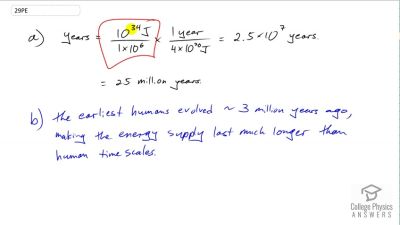 29PE
a) years = 10³⁴ J / 1×10⁶ × 1 year / 4×10²⁰ J = 2.5×10⁷ years.
= 25 million years.
b) the earliest humans evolved ~ 3 million years ago,
making the energy supply last much longer than
human time scales.
College Physics
ANSWERS